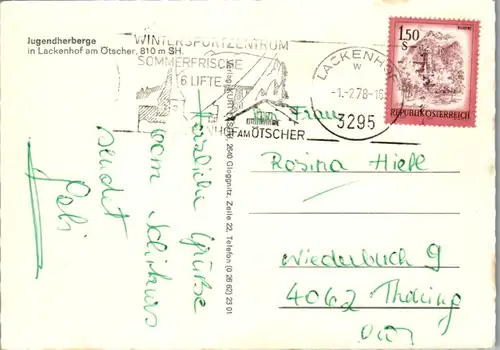 Jugendherberge
in Lackenhof am Ötscher, 810 m SH.
WINTERSPORTZENTRUM
SOMMERFRISCHE
6 LIFTE
AM ÖTSCHER
LACKENHOF
-1.-2.78-16
3295
1.50
S
REPUBLIK ÖSTERREICH
2640 Gloggnitz, Zeile 22, Telefon (0 26 62) 23 01
Herzliche Grüße
vom Schikurs
sendet
Frau
Rosina Hiehl
Wiederbuch 9
4062 Thening